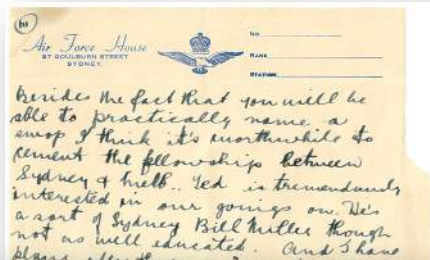 Air Force House
87 GOULBURN STREET
SYDNEY.
NO
NAME
STATION
Besides the fact that you will be
able to practically name a
swop I think it's worthwhile to
cement the fellowship between
Sydney & Melb.. Ted is tremendously
interested in our goings on. He's
a sort of Sydney Bill Miller though
not as well educated. And I have
plans